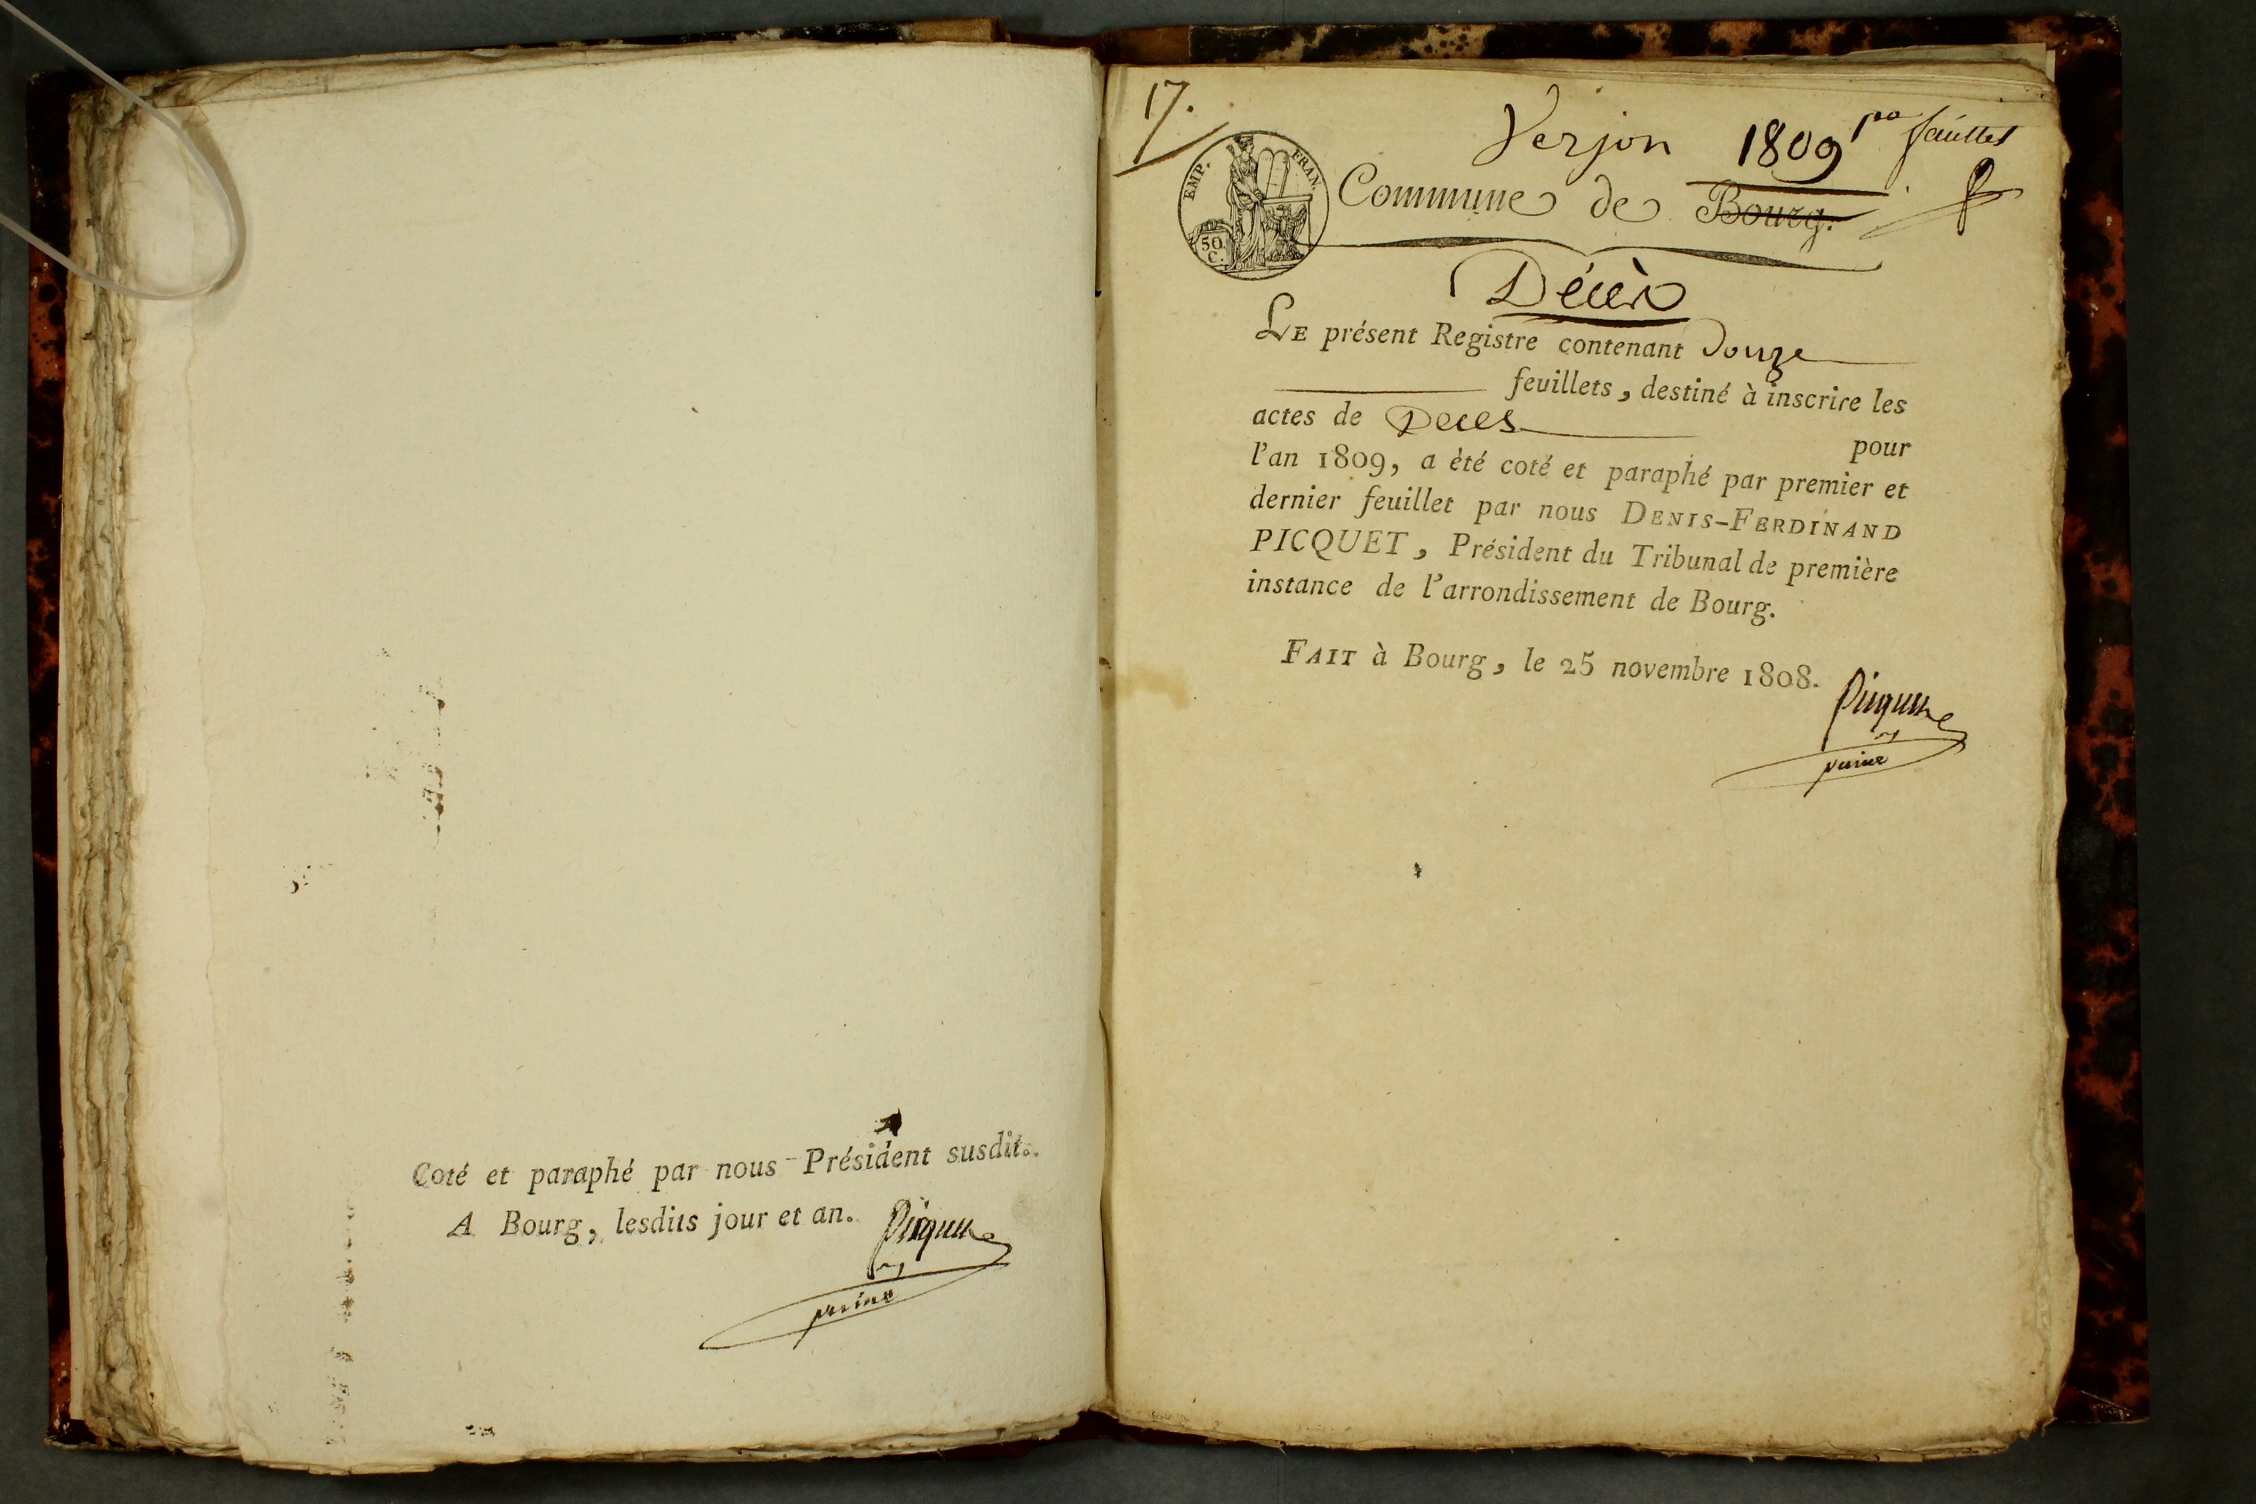 Coté et paraphé par nous Président susdit.
A Bourg, lesdits jour et an.
Picquet
17.
Verjon 1809 feuillet
EMP. FRAN.
50.
C.
Commune de Bourg.
Décès
LE présent Registre contenant Douze
feuillets, destiné à inscrire les
actes de Deces pour
l'an 1809, a èté coté et paraphé par premier et
dernier feuillet par nous DENIS-FERDINAND
PICQUET, Président du Tribunal de première
instance de l'arrondissement de Bourg.
FAIT à Bourg, le 25 novembre 1808.
Picquet